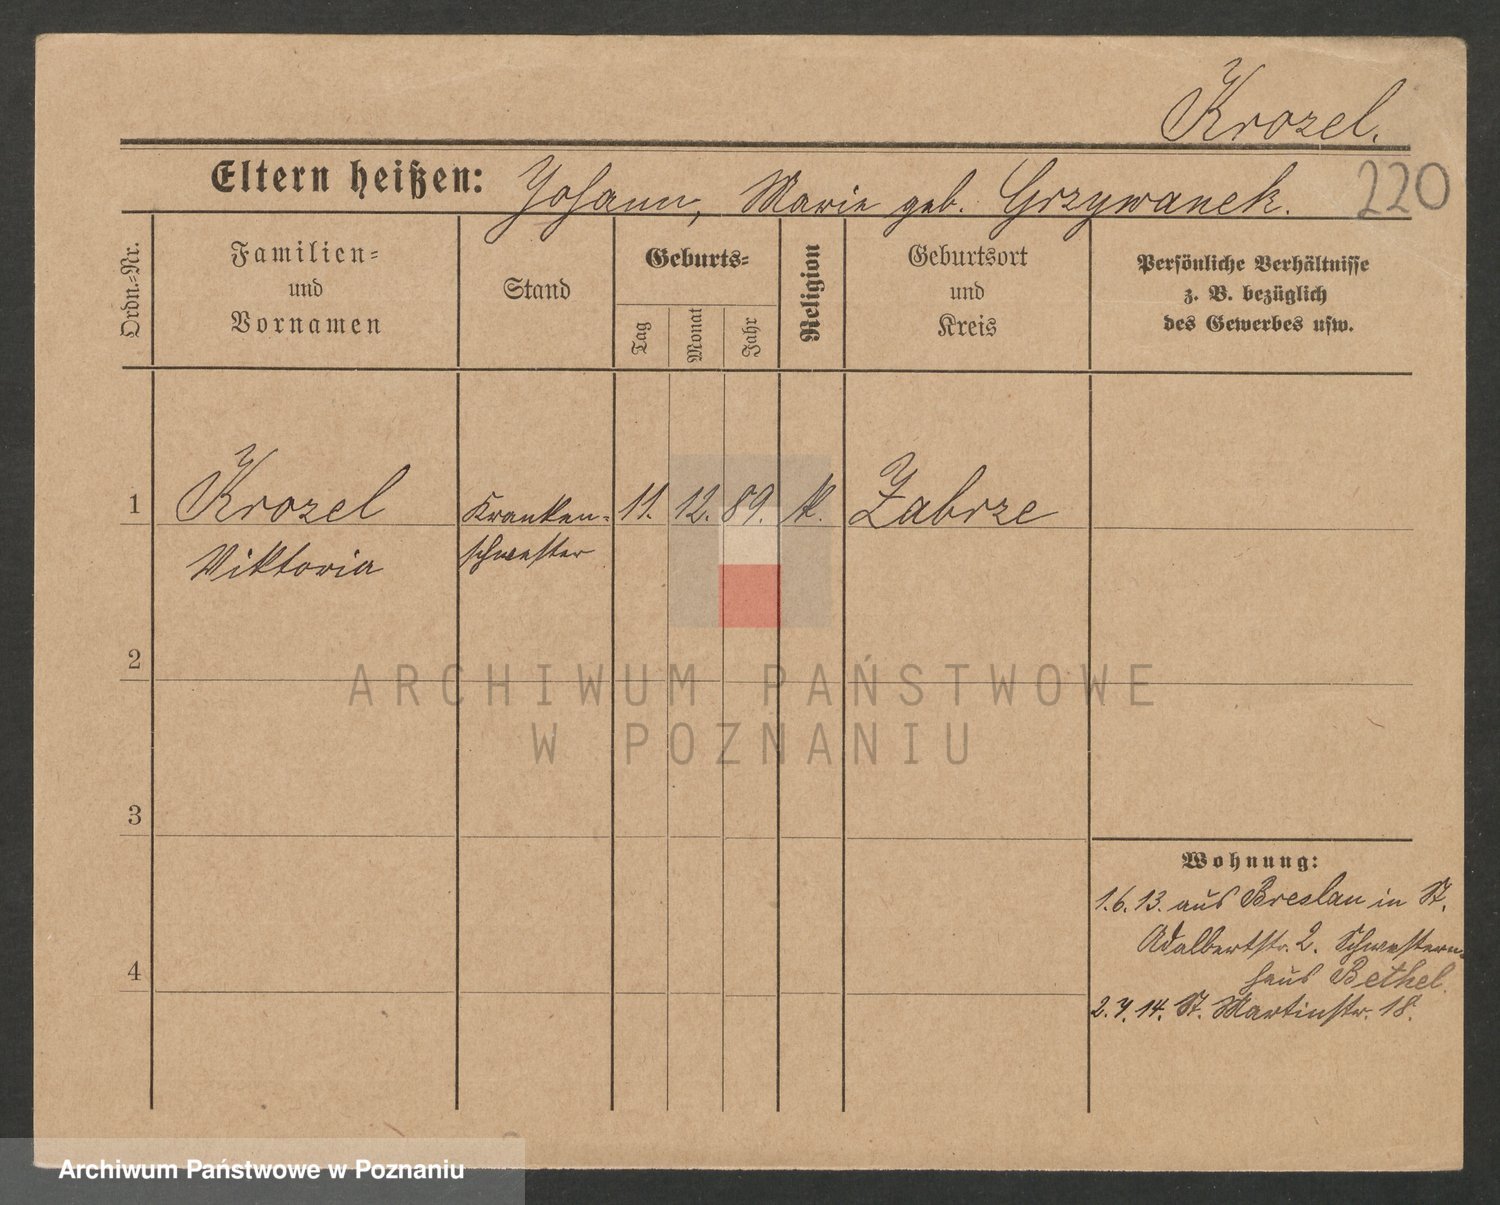 Krozel.
Eltern heißen: Johann, Marie geb. Grzywanek.
220
Ordn.-Nr.
Familien-
und
Vornamen
Stand
Geburts-
Tag
Monat
Jahr
Religion
Geburtsort
und
Kreis
Persönliche Verhältnisse
z. B. bezüglich
des Gewerbes usw.
1 Krozel Kranken- 11. 12. 89. k. Zabrze
Viktoria schwester
2
ARCHIWUM PAŃSTWOWE
W POZNANIU
3
Wohnung:
1.6.13. aus Breslau in St.
Adalbertstr. 2. Schwestern-
4
haus Bethel.
2.4.14. St. Martinstr. 18.
Archiwum Państwowe w Poznaniu